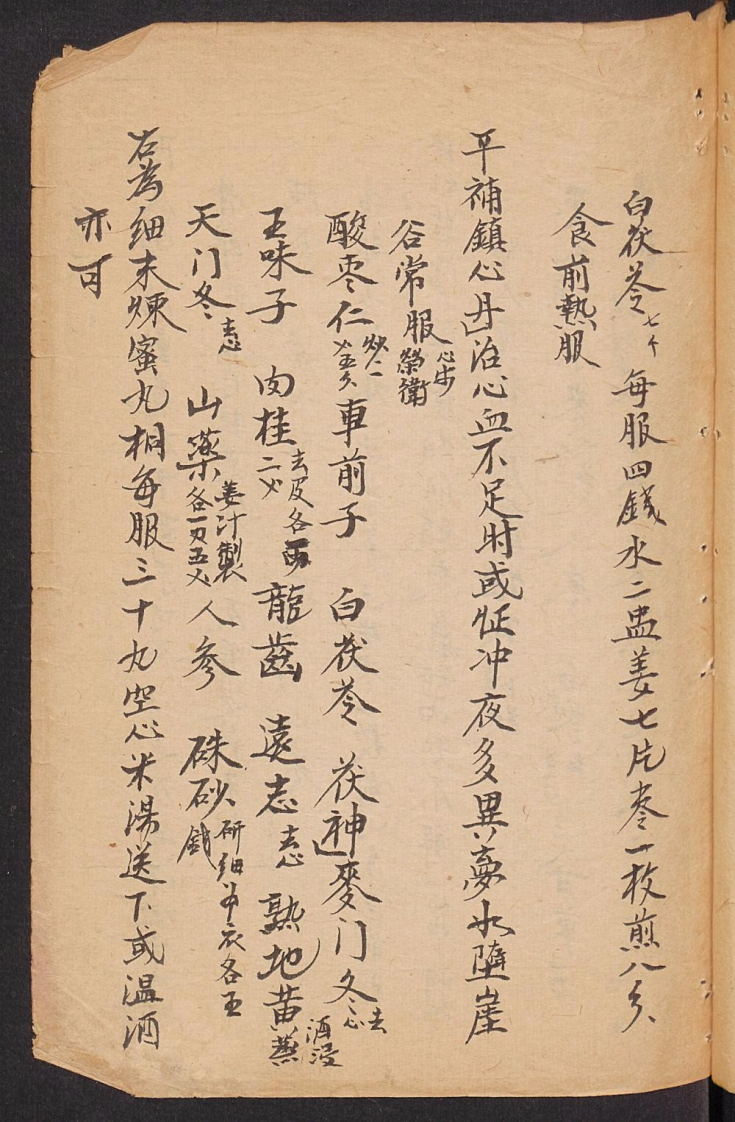 白茯苓七个 每服四錢水二盅姜七片枣一枚煎八分
食前熱服
平補鎮心丹治心血不足时或怔冲夜多異夢如墮崖
谷常服安心榮衛
酸枣仁炒二 車前子 白茯苓 茯神 麥门冬去心
五味子 肉桂去皮各 龍齒 遠志去心 熟地黄酒浸蒸
天门冬去心 山藥姜汁製各一两五 人参 硃砂研細為衣各五錢
右為細末煉蜜丸桐每服三十丸空心米湯送下或温酒
亦可